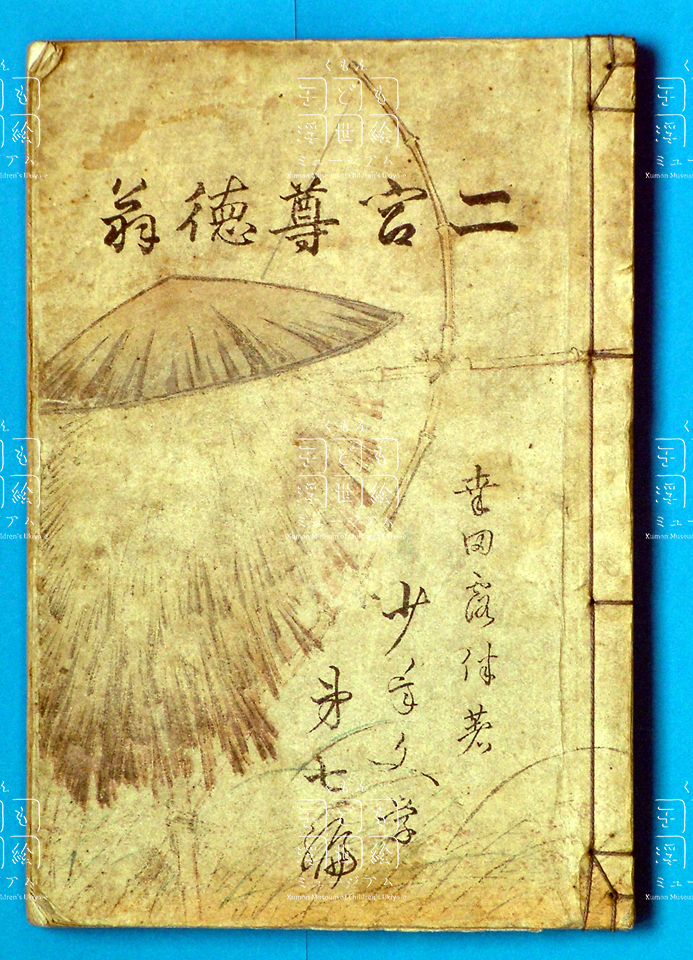 二宮尊徳翁
幸田露伴著
少年文学
第七編
くもん
子ども
浮世絵
ミュージアム
Kumon Museum of Children's Ukiyo-e